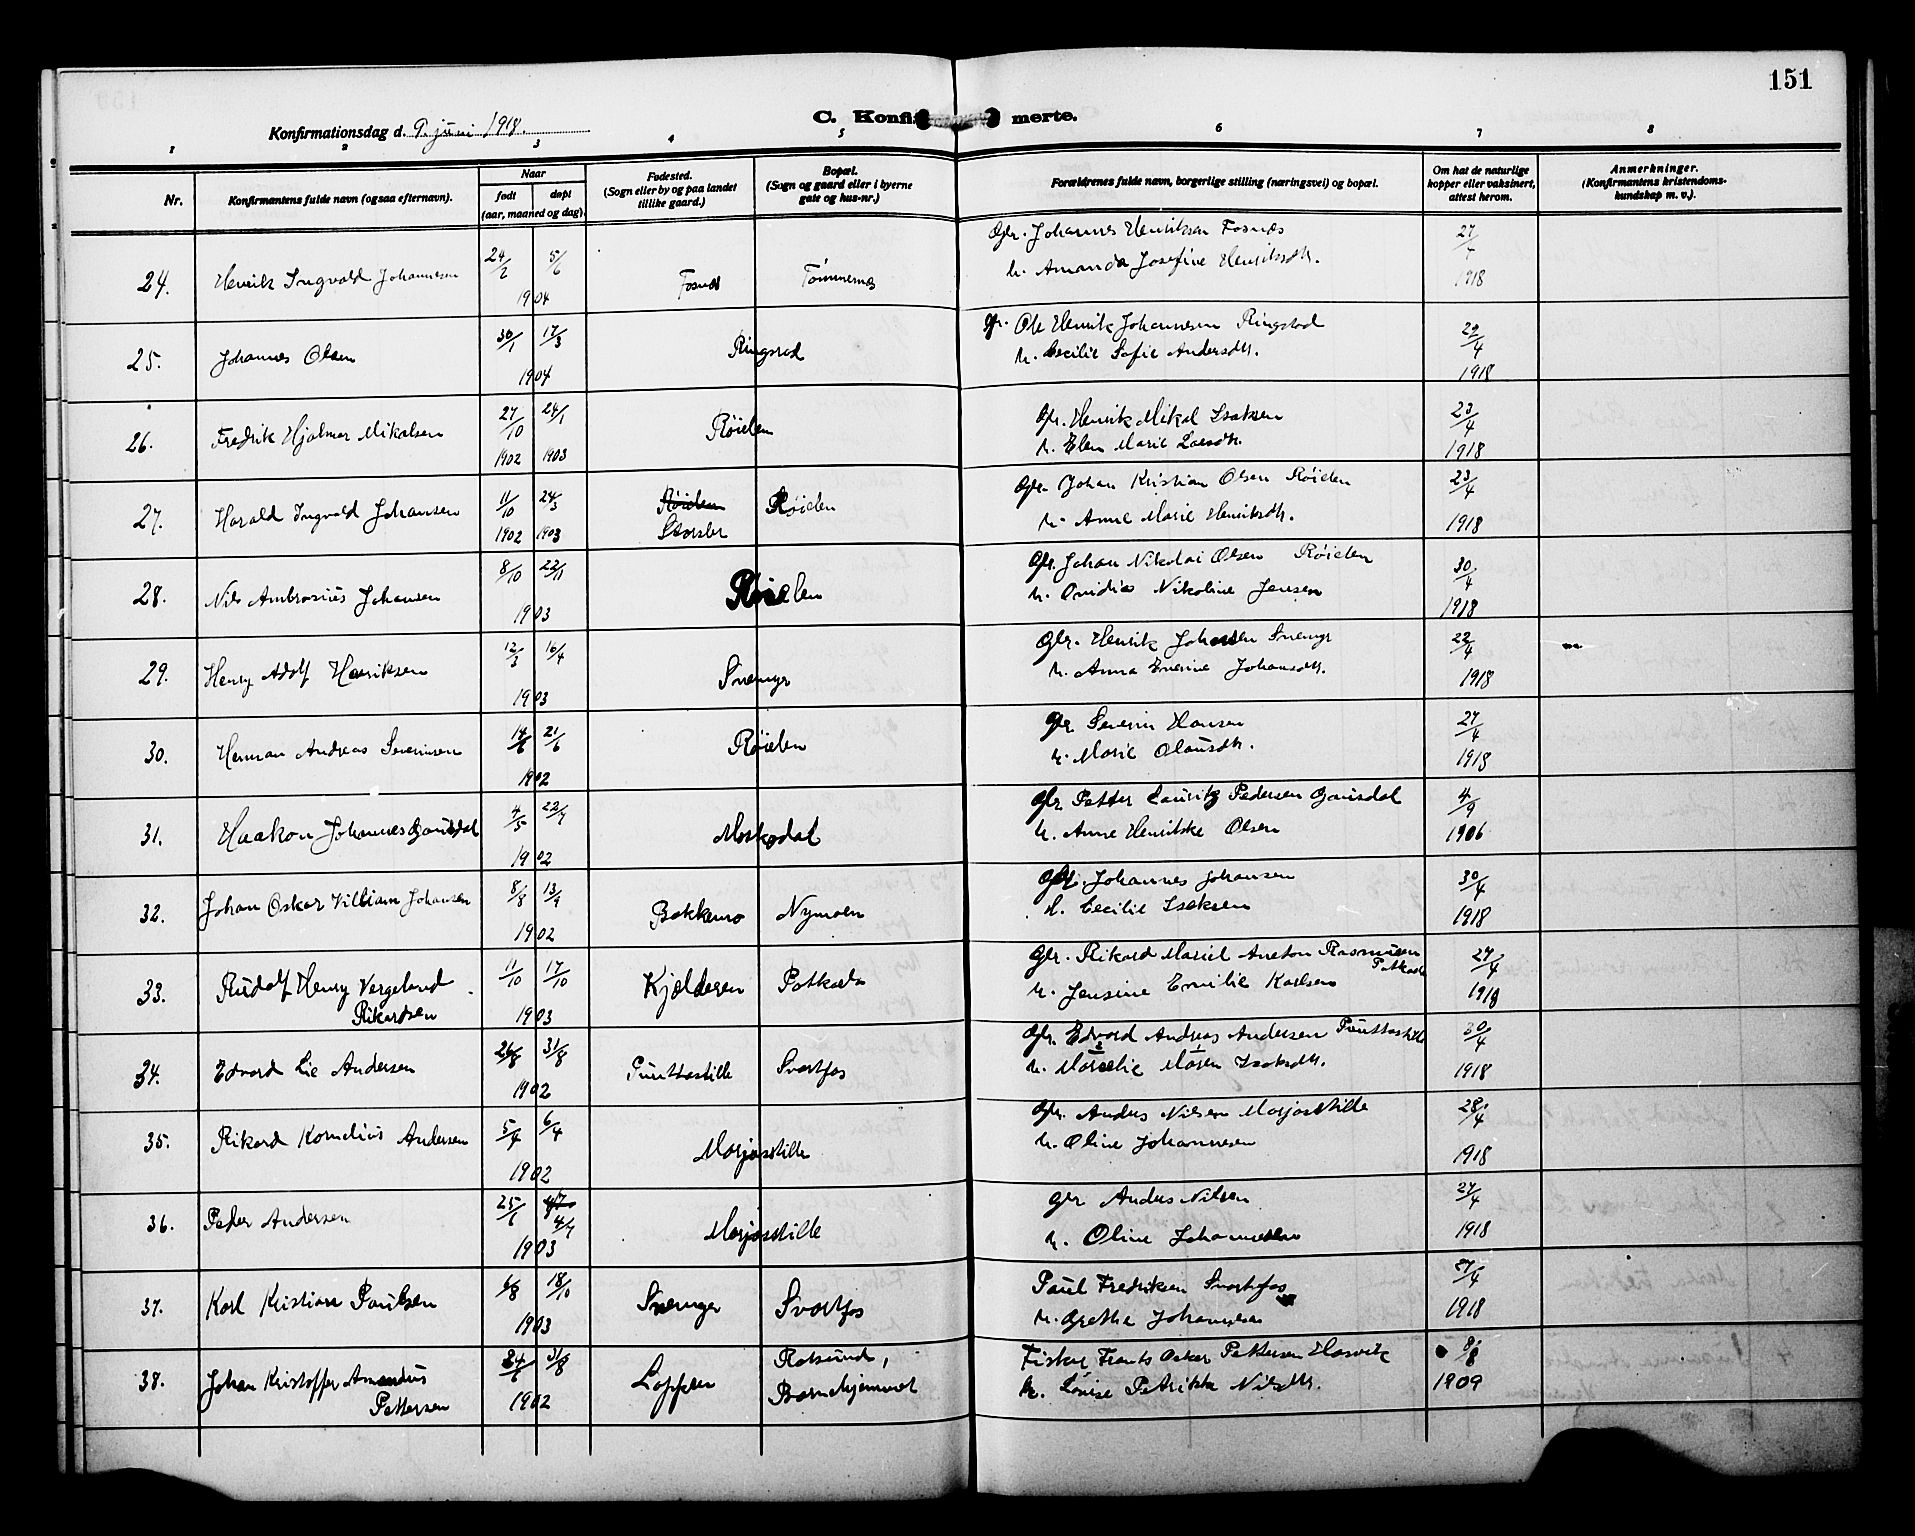 151
C. Konfirmerte.
Konfirmationsdag d. 9. juni 1918.
1 2 3 4 5 6 7 8
Nr.
Konfirmantens fulde navn (ogsaa efternavn).
Naar
født døpt
(aar, maaned og dag).
Fødested.
(Sogn eller by og paa landet
tillike gaard.)
Bopæl.
(Sogn og gaard eller i byerne
gate og hus-nr.)
Forældrenes fulde navn, borgerlige stilling (næringsvei) og bopæl.
Om hat de naturlige
kopper eller vaksinert,
attest herom.
Anmerkninger.
(Konfirmantens kristendoms-
kundskap m. v.).
24. Henrik Ingvald Johannesen 24/2 5/6 1904 Fosnes Tømmernes
Gbr. Johannes Henriksen Fosnæs
h. Amanda Josefine Henriksdtr.
27/4 1918
25. Johannes Olsen 30/1 17/3 1904 Ringstad
Ole Henrik Johannesen Ringstad
h. Cecilie Sofie Andersdtr.
29/4 1918
26. Fredrik Hjalmer Mikalsen 27/10 1902 24/1 1903 Røielen
Gbr. Henrik Mikal Isaksen
h. Elen Marie Larsdtr.
23/4 1918
27. Harald Ingvald Johansen 11/10 1902 24/3 1903 Røielen Storslet Røielen
Gbr. Johan Kristian Olsen Røielen
h. Anne Marie Henriksdtr.
23/4 1918
28. Nils Ambrosius Johansen 8/10 22/11 1903 Røielen
Gbr. Johan Nikolai Olsen Røielen
h. Ovidia Nikoline Jensen
30/4 1918
29. Henry Adolf Henriksen 12/3 16/4 1903 Snemyr
Gbr. Henrik Johansen Snemyr
h. Anna Enerine Johansdtr.
22/4 1918
30. Herman Andreas Severinsen 14/6 21/6 1902 Røielen
Gbr Severin Hansen
h. Marie Olausdtr.
27/4 1918
31. Haakon Johannes Gausdal 4/5 22/7 1902 Moskodal
Gbr Petter Lauritz Pedersen Gausdal
h. Anne Henrikke Olsen
4/9 1906
32. Johan Oskar Villiam Johansen 8/8 13/9 1902 Bakkemo Nymoen
Gbr. Johannes Johansen
h. Cecilie Isaksen
30/4 1918
33. Rudolf Henry Vergeland
Rikardsen 11/10 17/10 1903 Kjelderen Potkæla
Gbr. Rikard Mariel Aneton Rasmussen
h. Jensine Emilie Karlsen
27/4 1918
34. Edvard Lie Andersen 26/8 31/8 1902 Punttastille Svartfos
Gbr. Edvard Andreas Andersen Punttastille
h. Marselie Maren Isaksdtr.
30/4 1918
35. Rikard Kornelius Andersen 5/4 6/4 1902 Marjasstille
Gbr. Anders Nilsen Marjasstille
h. Oline Johannesen
28/4 1918
36. Peder Andersen 25/6 4/7 1903 Marjasstille
Gbr Anders Nilsen
h. Oline Johannesen
27/4 1918
37. Karl Kristian Paulsen 6/8 18/10 1903 Snemyr Svartfos
Paul Fredriksen Svartfos
h. Grethe Johannesen
27/4 1918
38. Johan Kristoffer Amandus
Pettersen 24/6 31/8 1902 Loppen Rotsund,
Barnehjemmet
Fisker Frants Oskar Pettersen Hasvik
h. Lovise Petrikke Nilsdtr.
8/8 1909